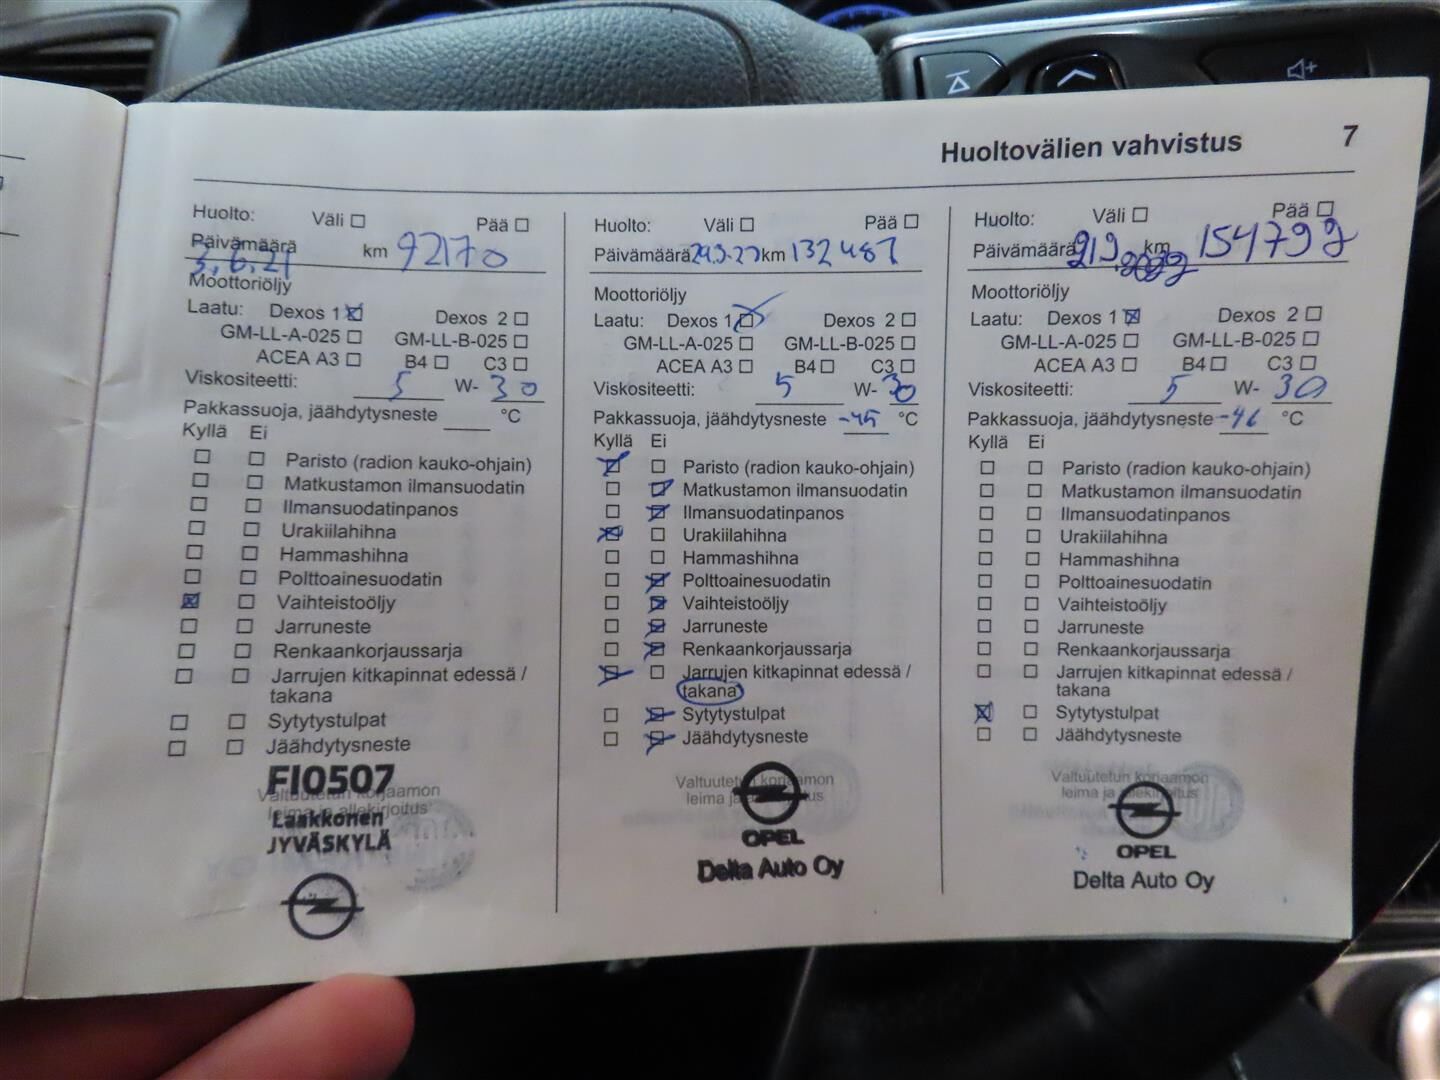 Huoltovälien vahvistus 7
Huolto: Väli ☐ Pää ☐
Päivämäärä km 92170
3.6.21
Moottoriöljy
Laatu: Dexos 1 ☒ Dexos 2 ☐
GM-LL-A-025 ☐ GM-LL-B-025 ☐
ACEA A3 ☐ B4 ☐ C3 ☐
Viskositeetti: 5 W- 30
Pakkassuoja, jäähdytysneste ____ °C
Kyllä Ei
☐ ☐ Paristo (radion kauko-ohjain)
☐ ☐ Matkustamon ilmansuodatin
☐ ☐ Ilmansuodatinpanos
☐ ☐ Urakiilahihna
☐ ☐ Hammashihna
☐ ☐ Polttoainesuodatin
☒ ☐ Vaihteistoöljy
☐ ☐ Jarruneste
☐ ☐ Renkaankorjaussarja
☐ ☐ Jarrujen kitkapinnat edessä /
takana
☐ ☐ Sytytystulpat
☐ ☐ Jäähdytysneste
FI0507
Valtuutetun korjaamon
leima ja allekirjoitus
Laakkonen
JYVÄSKYLÄ
Huolto: Väli ☐ Pää ☐
Päivämäärä km 132487
Moottoriöljy
Laatu: Dexos 1 ☒ Dexos 2 ☐
GM-LL-A-025 ☐ GM-LL-B-025 ☐
ACEA A3 ☐ B4 ☐ C3 ☐
Viskositeetti: 5 W- 30
Pakkassuoja, jäähdytysneste -45 °C
Kyllä Ei
☒ ☐ Paristo (radion kauko-ohjain)
☐ ☒ Matkustamon ilmansuodatin
☐ ☒ Ilmansuodatinpanos
☒ ☐ Urakiilahihna
☐ ☐ Hammashihna
☐ ☒ Polttoainesuodatin
☐ ☒ Vaihteistoöljy
☐ ☒ Jarruneste
☐ ☒ Renkaankorjaussarja
☒ ☐ Jarrujen kitkapinnat edessä /
takana
☐ ☒ Sytytystulpat
☐ ☒ Jäähdytysneste
Valtuutetun korjaamon
leima ja
OPEL
Delta Auto Oy
Huolto: Väli ☐ Pää ☐
Päivämäärä km
Moottoriöljy
Laatu: Dexos 1 ☒ Dexos 2 ☐
GM-LL-A-025 ☐ GM-LL-B-025 ☐
ACEA A3 ☐ B4 ☐ C3 ☐
Viskositeetti: 5 W- 30
Pakkassuoja, jäähdytysneste °C
Kyllä Ei
☐ ☐ Paristo (radion kauko-ohjain)
☐ ☐ Matkustamon ilmansuodatin
☐ ☐ Ilmansuodatinpanos
☐ ☐ Urakiilahihna
☐ ☐ Hammashihna
☐ ☐ Polttoainesuodatin
☐ ☐ Vaihteistoöljy
☐ ☐ Jarruneste
☐ ☐ Renkaankorjaussarja
☐ ☐ Jarrujen kitkapinnat edessä /
takana
☒ ☐ Sytytystulpat
☐ ☐ Jäähdytysneste
Valtuutetun korjaamon
leima ja allekirjoitus
OPEL
Delta Auto Oy